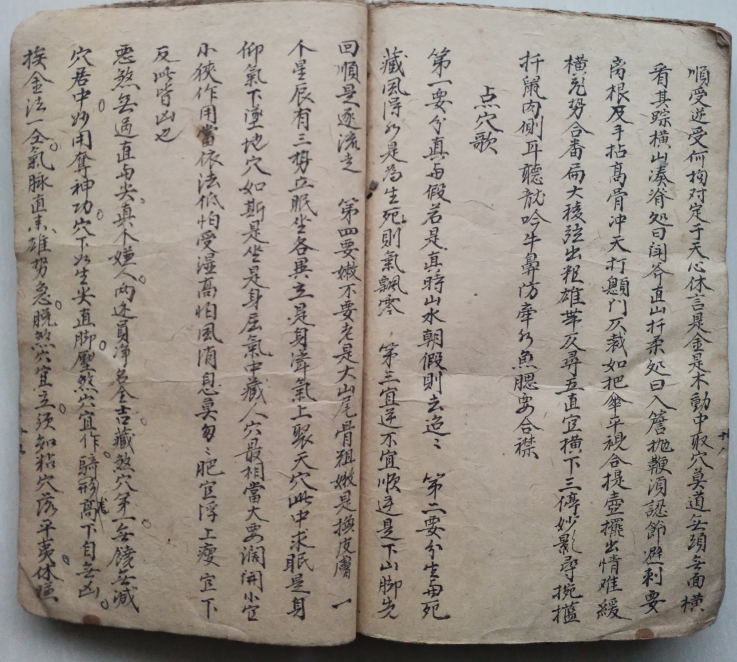 順受逆受何拘对定于天心休言是金是木動中取穴莫道無頭無面橫
看其踪橫山湊脊処曰開斧直山扦柔処曰入簷抛鞭須認節避剌要
离根及手拈高骨冲天打顋門仄裁如把傘平視合提壺擺出情难緩
橫死势合番扁大稜弦出粗雄莘仄尋五直宜橫下三停妙影尋捥榅
扦鼠肉側耳聽龍吟牛鼻防牽水魚腮要合襟
点穴歌
第一要分真与假若是真時山水朝假則去迢々 第二要分生与死
藏風得水是為生死則氣飄零 第三宜逆不宜順逆是下山脚先
回順是逐流走 第四要嫩不要老是大山尾骨粗嫩是換皮膚 一
个星辰有三势立眠坐各異立是身聳氣上聚天穴此中求眠是身
仰氣下墜地穴如斯是坐是身屈氣中藏人穴最相當大要濶開小宜
小狹作用當依法低怕受湿高怕風消息莫匆々肥宜浮上瘦宜下
反此皆凶也
惡煞無過直与尖真个嫌人向逐員净名全吉藏煞穴第一無饒無减
穴居中妙用奪神功穴下如生尖直脚壓煞穴宜作騎形高下自無凶
挨金法一仝氣脉直来雄势急脫煞穴宜立須如粘穴落平夷休